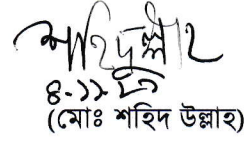 শহিদুল্লাহ
৪-১১-
(মোঃ শহিদ উল্লাহ)